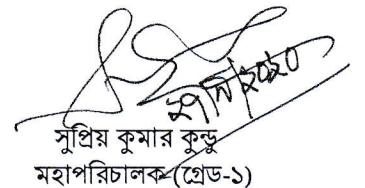 সুপ্রিয় কুমার কুন্ডু
মহাপরিচালক (গ্রেড-১)